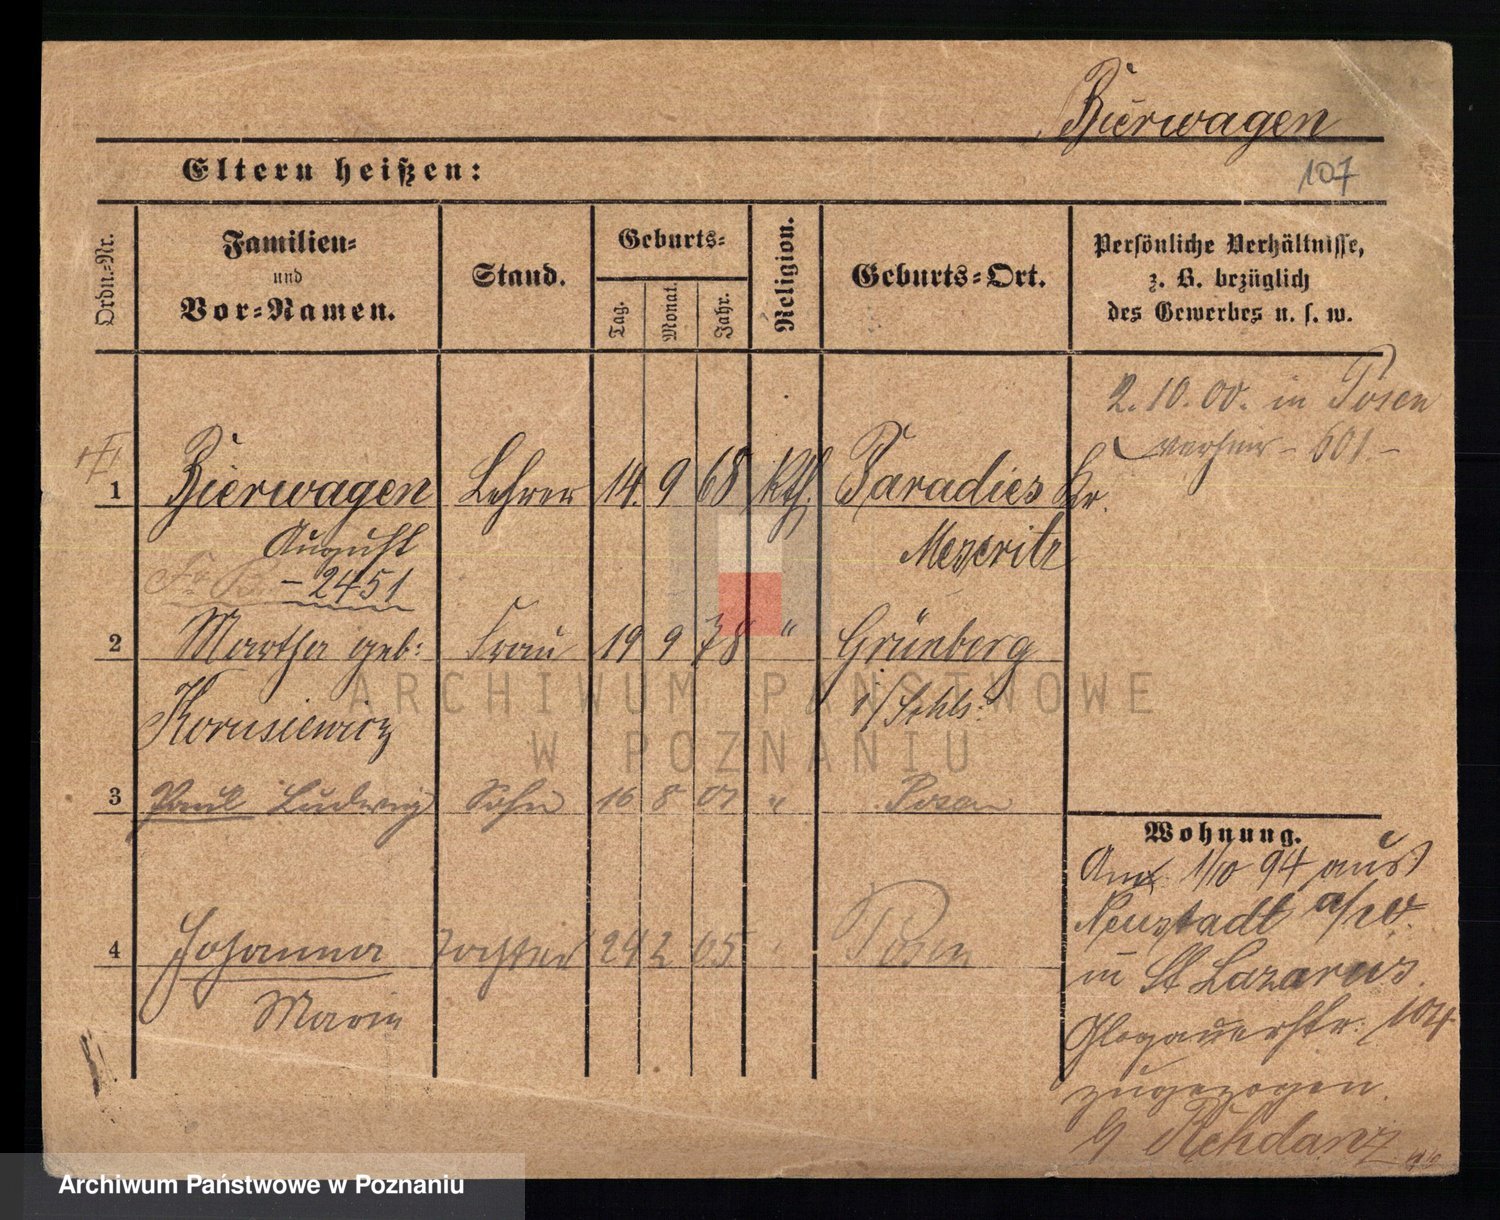 Bierwagen
Eltern heißen:
107
Ordn.-Nr.
Familien-
und
Vor-Namen.
Stand.
Geburts-
Tag.
Monat.
Jahr.
Religion.
Geburts-Ort.
Persönliche Verhältnisse,
z. B. bezüglich
des Gewerbes u. s. w.
2. 10. 00. in Posen
verheir - 601 -
1 Bierwagen Lehrer 14. 9 68 kth. Paradies Kr.
August Meseritz
- 2451
2 Martha geb: Frau 19 9 78 " Grünberg
Korusiewicz i/Schls:
3 Paul Ludwig Sohn 16 8 01 " Posen
Wohnung.
Am 1/10 94 aus
Neustadt a/W.
4 Johanna Tochter 24 2 05 " Posen
in St Lazarus.
Marie
Glogauerstr. 104
zugezogen.
Rehdanz
ARCHIWUM PAŃSTWOWE
W POZNANIU
Archiwum Państwowe w Poznaniu